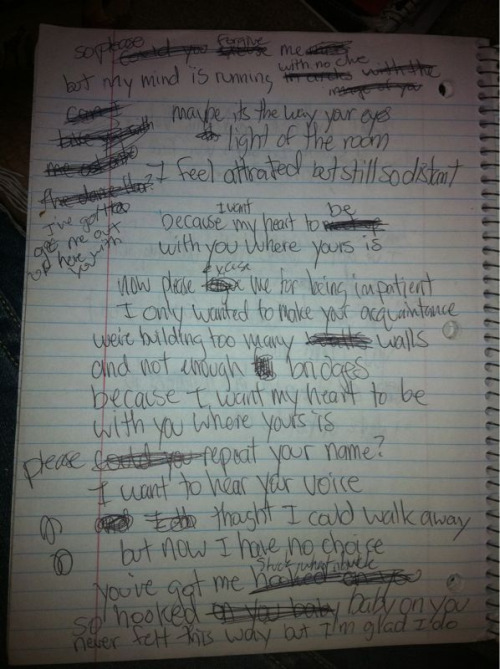 so please could you forgive me
but my mind is running with no clue
in circles with the
image of you
maybe its the way your eyes
light of the room
I feel attrated but still so distant
I've got
get me out
up here with
you with
because my heart to be
I want
with you where yours is
now please excuse me for being impatient
I only wanted to make your acquaintance
we're building too many walls walls
and not enough bridges
because I want my heart to be
with you where yours is
please could you repeat your name?
I want to hear your voice
thought I could walk away
but now I have no choice
you've got me hooked on you
stuck
so hooked on you baby baby on you
never felt this way but I'm glad I do